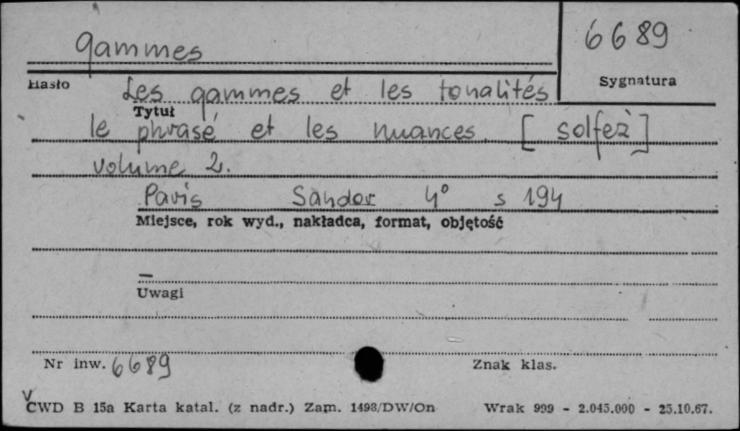 gammes
6689
Hasło
Sygnatura
Les gammes et les tonalités
Tytuł
le phrasé et les nuances. [solfeż]
volume 2.
Paris Sandor 4° s 194
Miejsce, rok wyd., nakładca, format, objętość
—
Uwagi
Nr inw. 6689
Znak klas.
CWD B 15a Karta katal. (z nadr.) Zam. 1498/DW/On Wrak 999 - 2.045.000 - 25.10.67.